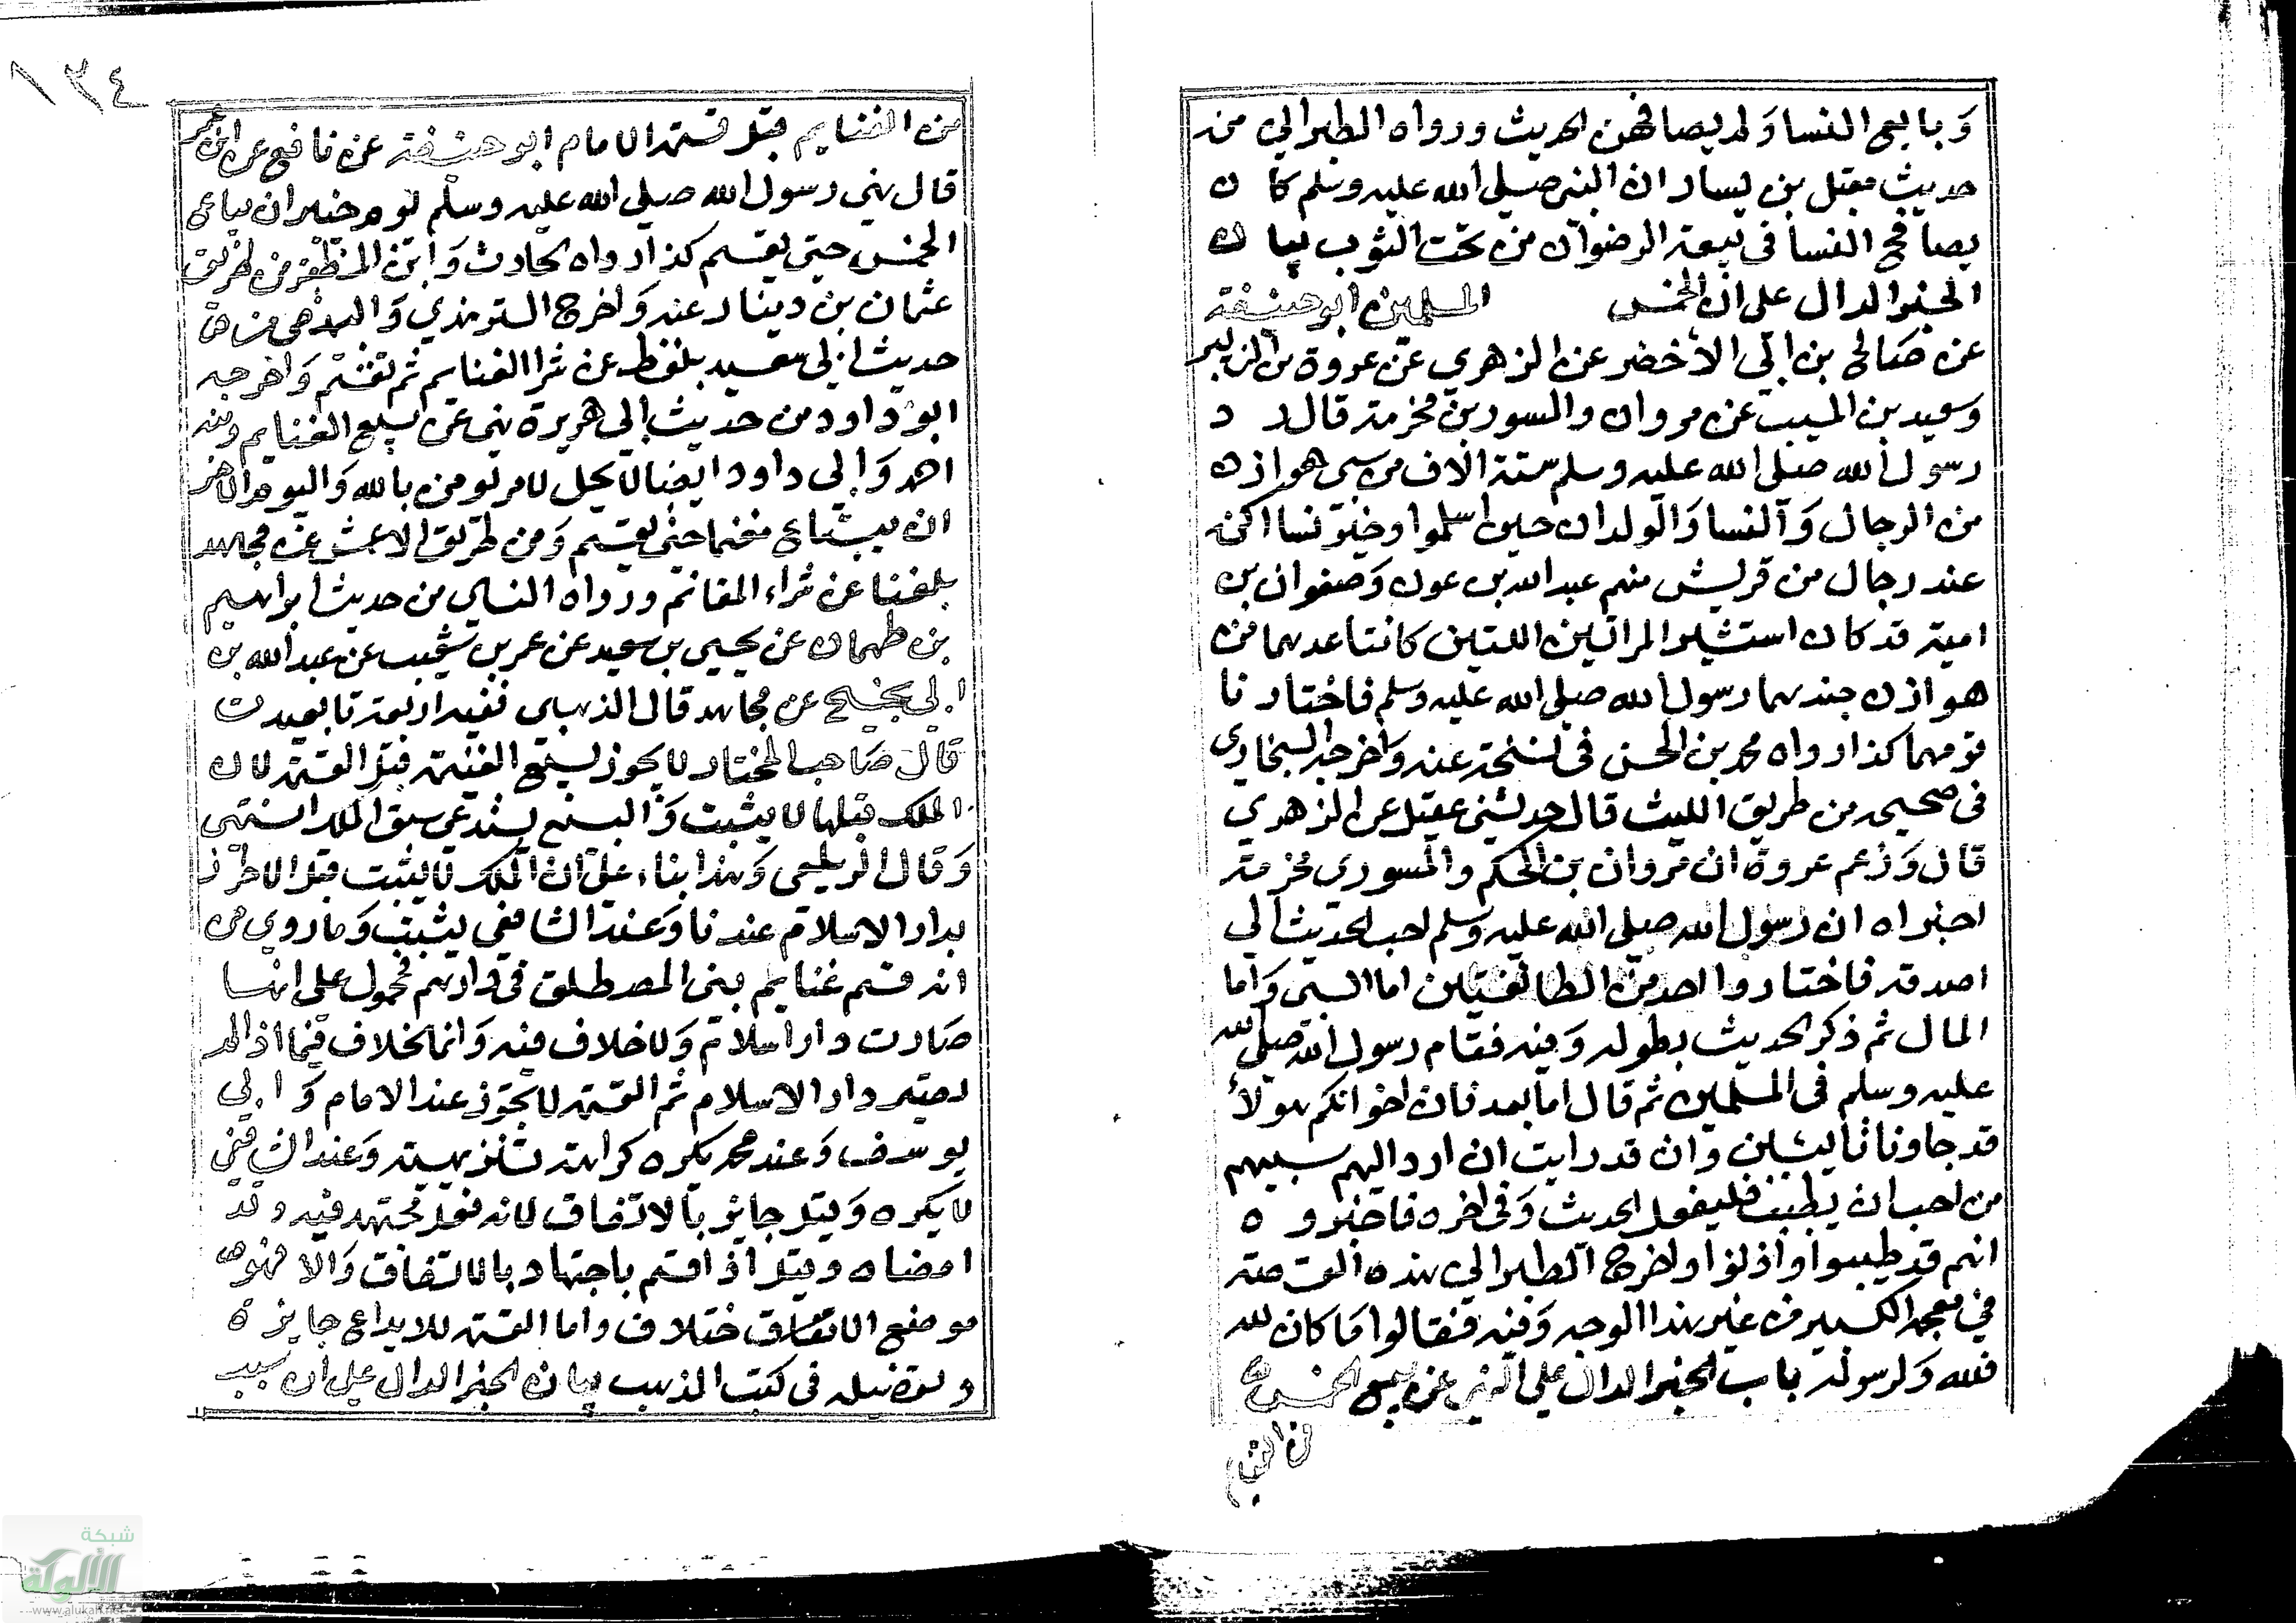 وبايع النسا ولم يصافحهن الحديث ورواه الطبراني من
حديث معقل بن يسار ان النبي صلى الله عليه وسلم كان
يصافح النسا في بيعة الرضوان من تحت الثوب بيان
الخبر الدال على ان الخمس المسلمين ابو حنيفة
عن صالح بن ابي الأخضر عن الزهري عن عروة بن الزبير
وسعيد بن المسيب عن مروان والمسور بن مخرمة قال رد
رسول الله صلى الله عليه وسلم ستة الاف من سبي هوازن
من الرجال والنسا والولدان حين اسلموا وخير نسا اكن
عند رجال من قريش منهم عبد الله بن عون وصفوان بن
امية قد كان استشيرا المراتين اللتين كانتا عدهما من
هوازن جندهما رسول الله صلى الله عليه وسلم فاختارتا
قومهما كذا رواه محمد بن الحسن في نسخته عنه واخرجه البخاري
في صحيحه من طريق الليث قال حدثني عقيل عن الزهري
قال وزعم عروة ان مروان بن الحكم والمسور بن مخرمة
اخبراه ان رسول الله صلى الله عليه وسلم احب الحديث الي
اصدقه فاختاروا احد من الطائفتين اما السبي واما
المال ثم ذكر الحديث بطوله وفيه فقام رسول الله صلى الله
عليه وسلم في المسلمين ثم قال اما بعد فان اخوانكم هولأ
قد جاونا تايبين وان قد رايت ان ارد اليهم سبيهم
من احب ان يطيب فليفعل الحديث وفي اخره فاخبروه
انهم قد طيبوا واذنوا واخرج الطبراني هذه القصة
في معجمه الكبير من غير هذا الوجه وفيه فقالوا ما كان لله
فلله ولرسوله باب الخبر الدال على النهي عن بيع الخمس
من الغنايم
١٣٤
من الغنايم قبل قسمه الامام ابو حنيفة عن نافع عن ابن عمر
قال نهى رسول الله صلى الله عليه وسلم يوم خيبر ان يباع
الخمس حتى يقسم كذا رواه الحارث وابن المظفر من طريق
عثمان بن دينار عنه واخرج الترمذي و
حديث ابي سعيد بلفظ عن شرا الغنايم ثم تقسم واخرجه
ابو داود من حديث ابي هريرة نهى عن بيع الغنايم وعند
احمد وابي داود ايضا لا يحل لامر يومن بالله واليوم الاخر
ان يبتاع مغنما حتى يقسم ومن طريق الاعمش عن مجاهد
بلفنا عن شراء المغانم ورواه النساي من حديث ابراهيم
بن طهمان عن يحيى بن سعيد عن عمر بن شعيب عن عبد الله بن
ابي نجيح عن مجاهد قال الذهبي ففيه اربعة تابعيون
قال صاحب المختار لا يجوز بيع الغنيمة قبل القسمة لان
الملك قبلها لا يثبت والبيع يستدعي سبق الملك انتهى
وقال الزيلعي وهذا بناء على ان الملك لا يثبت قبل الاحراز
بدار الاسلام عندنا وعند الشافعي يثبت وما روي من
انه قسم غنايم بني المصطلق في دارهم محمول على انها
صارت دار اسلام ولا خلاف فيه وانما الخلاف فيما اذا لم
يصير دار الاسلام ثم القسمة لا تجوز عند الامام وابي
يوسف وعند محمد يكره كراهة تنزيهية وعند الشافعي
لا يكره وقيل جائز بالاتفاق لانه فعل مجتهد فيه وقد
امضاه وقيل اذا قسم باجتهاد بالاتفاق والا فهو
موضع الاتفاق ختلاف واما القسمة للايداع جايزة
وتفصيله في كتب المذهب بيان الخبر الدال على ان سبب
شبكة
الألوكة
www.alukah.net